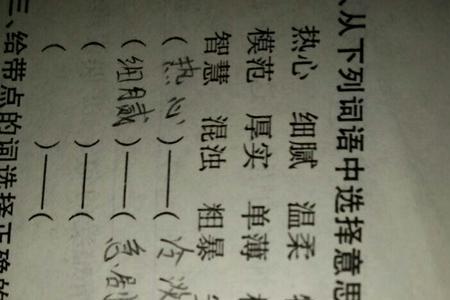 、从下列词语中选择意思
热心 细腻 温柔
模范 厚实 单薄
智慧 混浊 粗暴
(热心)——(冷淡
(细腻)——(急剧
( )——(
( )——(
三、给带点的词选择正确的